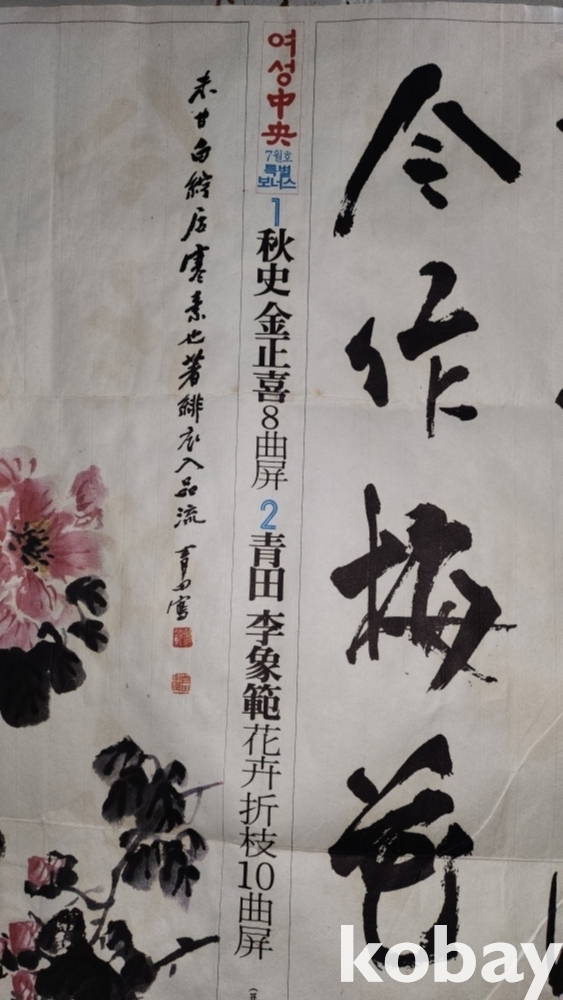 今作梅花
여성中央
7월호
특별
보너스
1 秋史 金正喜 8曲屏 2 青田 李象範 花卉折枝10曲屏
未甘白紵居寒素也著緋衣入品流 青田寫
kobay